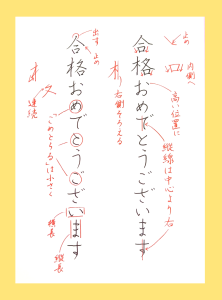 合格おめでとうございます
高い位置に
縦線は中心より右
内側へ
止め
右側そろえる
合格おめでとうございます
出す
止め
連続
「らめとうる」は小さく
横長
縦長